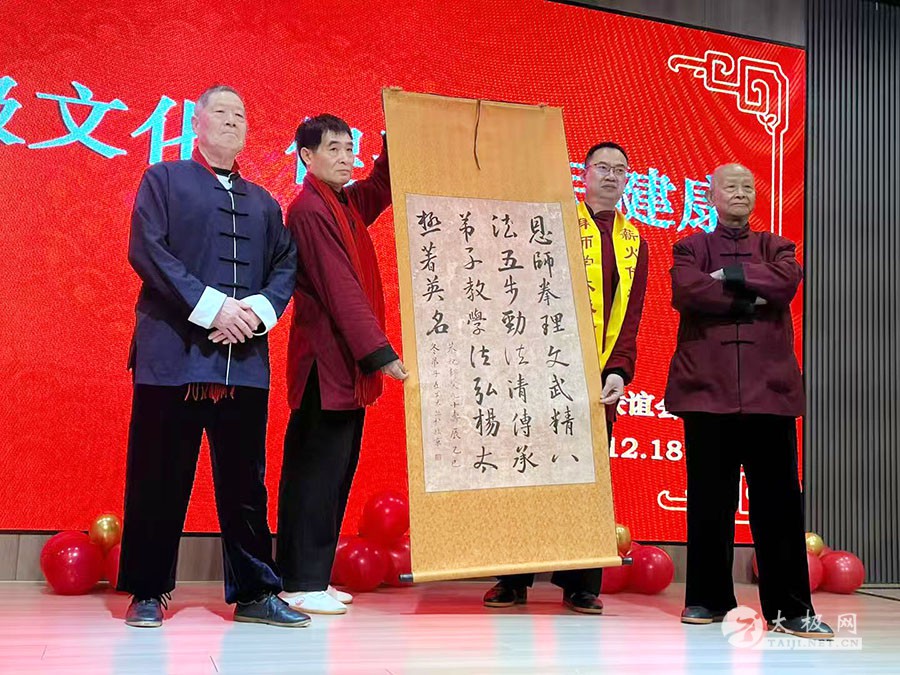 文化 健康
恩師拳理文武精八
法五步勁法清傳承
弟子教學法弘楊太
極著英名
薪火
谊会
12.18
太极网
TAIJI.NET.CN